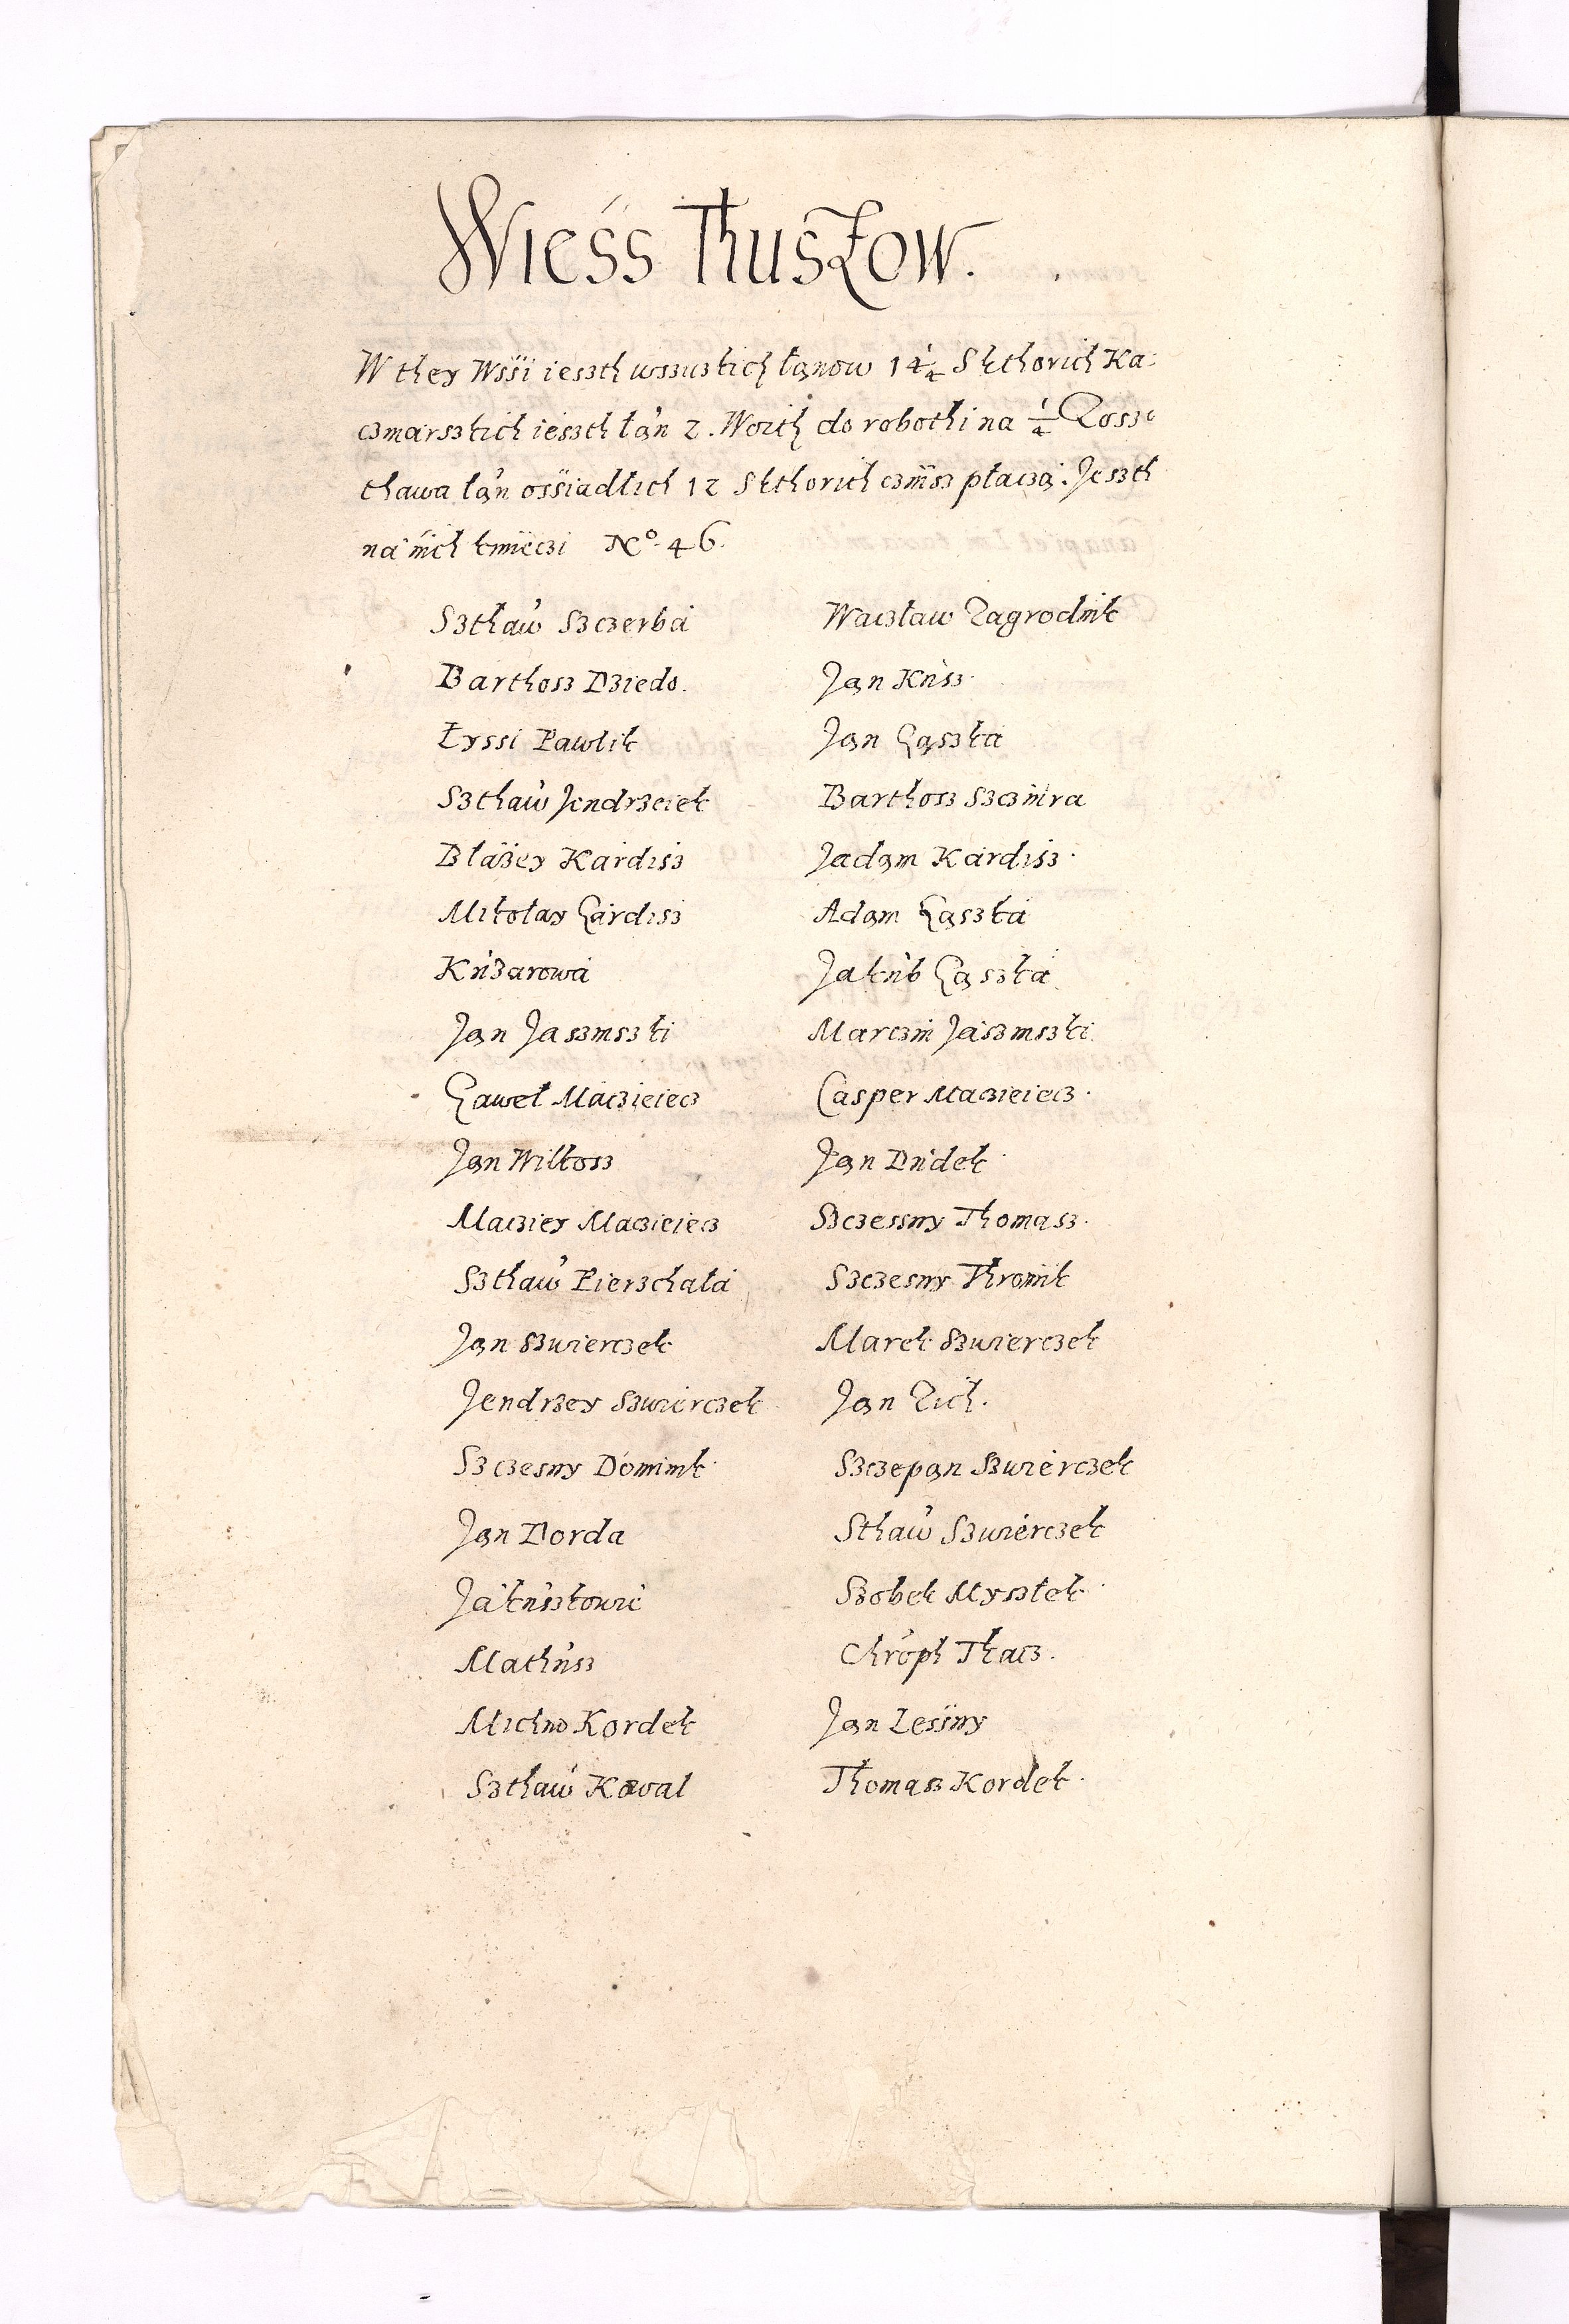 Wiess Thuszow.
W they Wssi ieszth wszuzkich łąnow 14¼ S kthorich Ka:
czmarszkich ieszth łan 2. Woith do robothi na ¼ Zosz
thawa łan ossiadłich 12 S kthorich czinsz płaczą: Jeszth
na nich kmieczi No. 46.
Szthaw Szczerba
Barthosz Dziedo.
Łyssi Pawlik
Szthaw Jendrzeiek
Błażey Kardisz
Mikołay Gardisz
Kużarowa
Jan Jaszmszki
Gaweł Macziejecz
Jan Wilkosz
Macziey Macziejecz
Szthaw Pierzchała
Jan Szwierczek
Jendrzey Szwierczek
Szczesny Dominik
Jan Dorda
Jakuszkowic
Mathusz
Michno Kordek
Szthaw Kowal
Waczław Zagrodnik
Jan Kusz
Jan Gąszka
Barthosz Szczura
Jadam Kardisz
Adam Gąszka
Jakub Gąszka
Marczin Jaszmszki
Casper Macziejecz
Jan Dudek
Szczessny Thomasz
Szczesny Thromik
Marek Szwierczek
Jan Zich.
Szczepan Szwierczek
Sthaw Szwierczek
Szobek Myszlek
Chroph Tkacz.
Jan Lessny
Thomasz Kordek